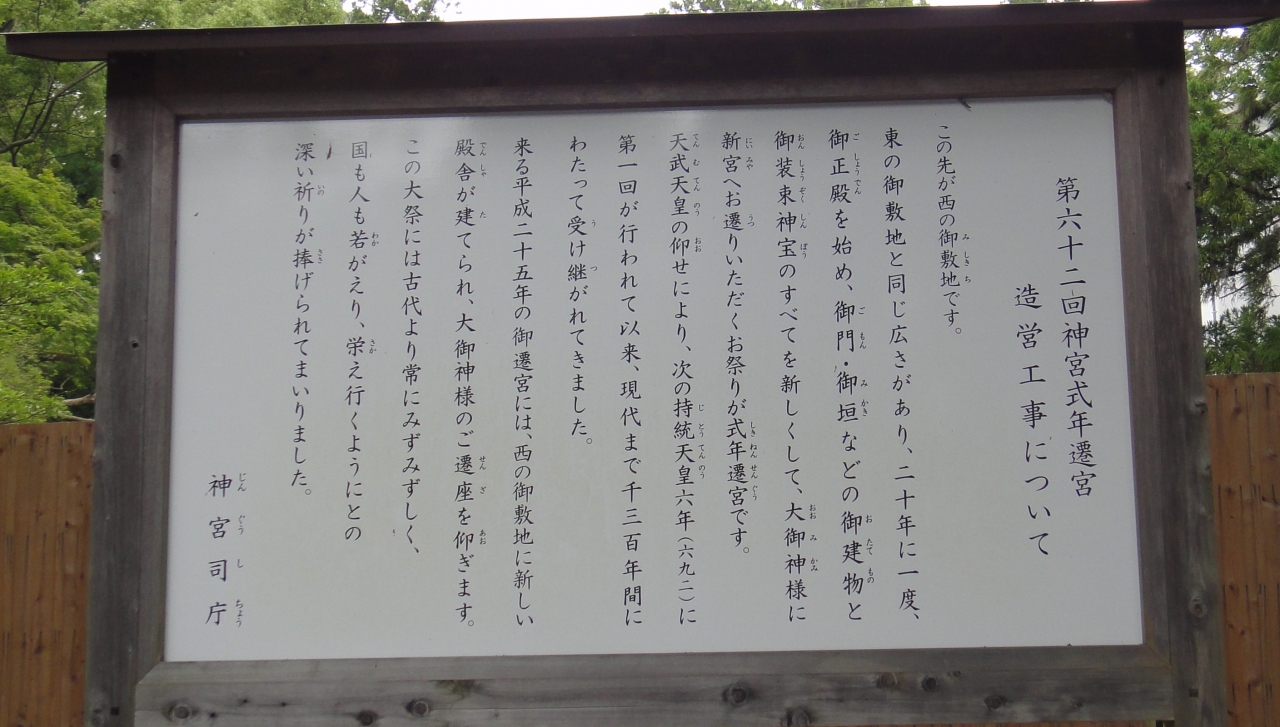 第六十二回神宮式年遷宮
造営工事について
この先が西の御敷地です。
東の御敷地と同じ広さがあり、二十年に一度、
御正殿を始め、御門・御垣などの御建物と
御装束神宝のすべてを新しくして、大御神様に
新宮へお遷りいただくお祭りが式年遷宮です。
天武天皇の仰せにより、次の持統天皇六年(六九二)に
第一回が行われて以来、現代まで千三百年間に
わたって受け継がれてきました。
来る平成二十五年の御遷宮には、西の御敷地に新しい
殿舎が建てられ、大御神様のご遷座を仰ぎます。
この大祭には古代より常にみずみずしく、
国も人も若がえり、栄え行くようにとの
深い祈りが捧げられてまいりました。
神宮司庁